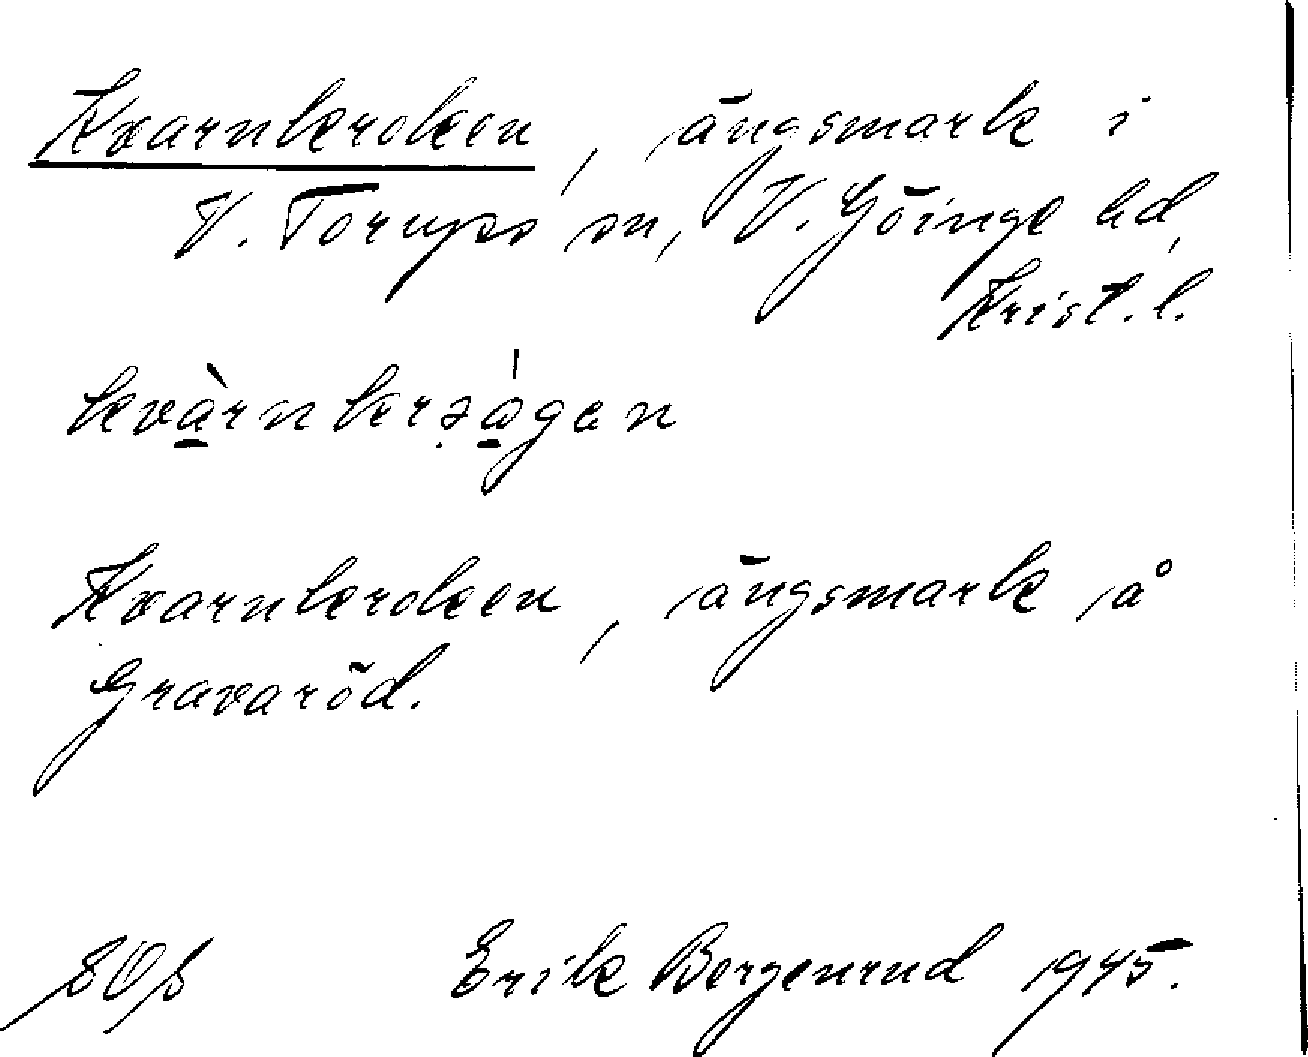 Kvarnkroken, ängsmark i
V. Torups sn, V. Göinge hd,
Krist. l.
Kvarnkroken, ängsmark å
Gravaröd.
Erik Bergenrud 1945.